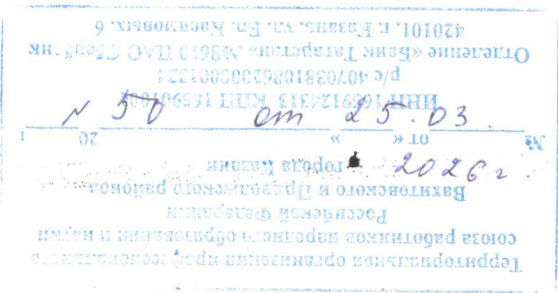 Территориальная организация профессионального
союза работников народного образования и науки
Российской Федерации
Вахитовского и Приволжского районов
города Казани
2026 г
№ от « » 20 г
N 50 от 25.03
ИНН 1659124313 КПП 165901001
р/с
Отделение «Банк Татарстан» №8610 ПАО Сбербанк
420101, г. Казань, ул. Бр. Касимовых, 6